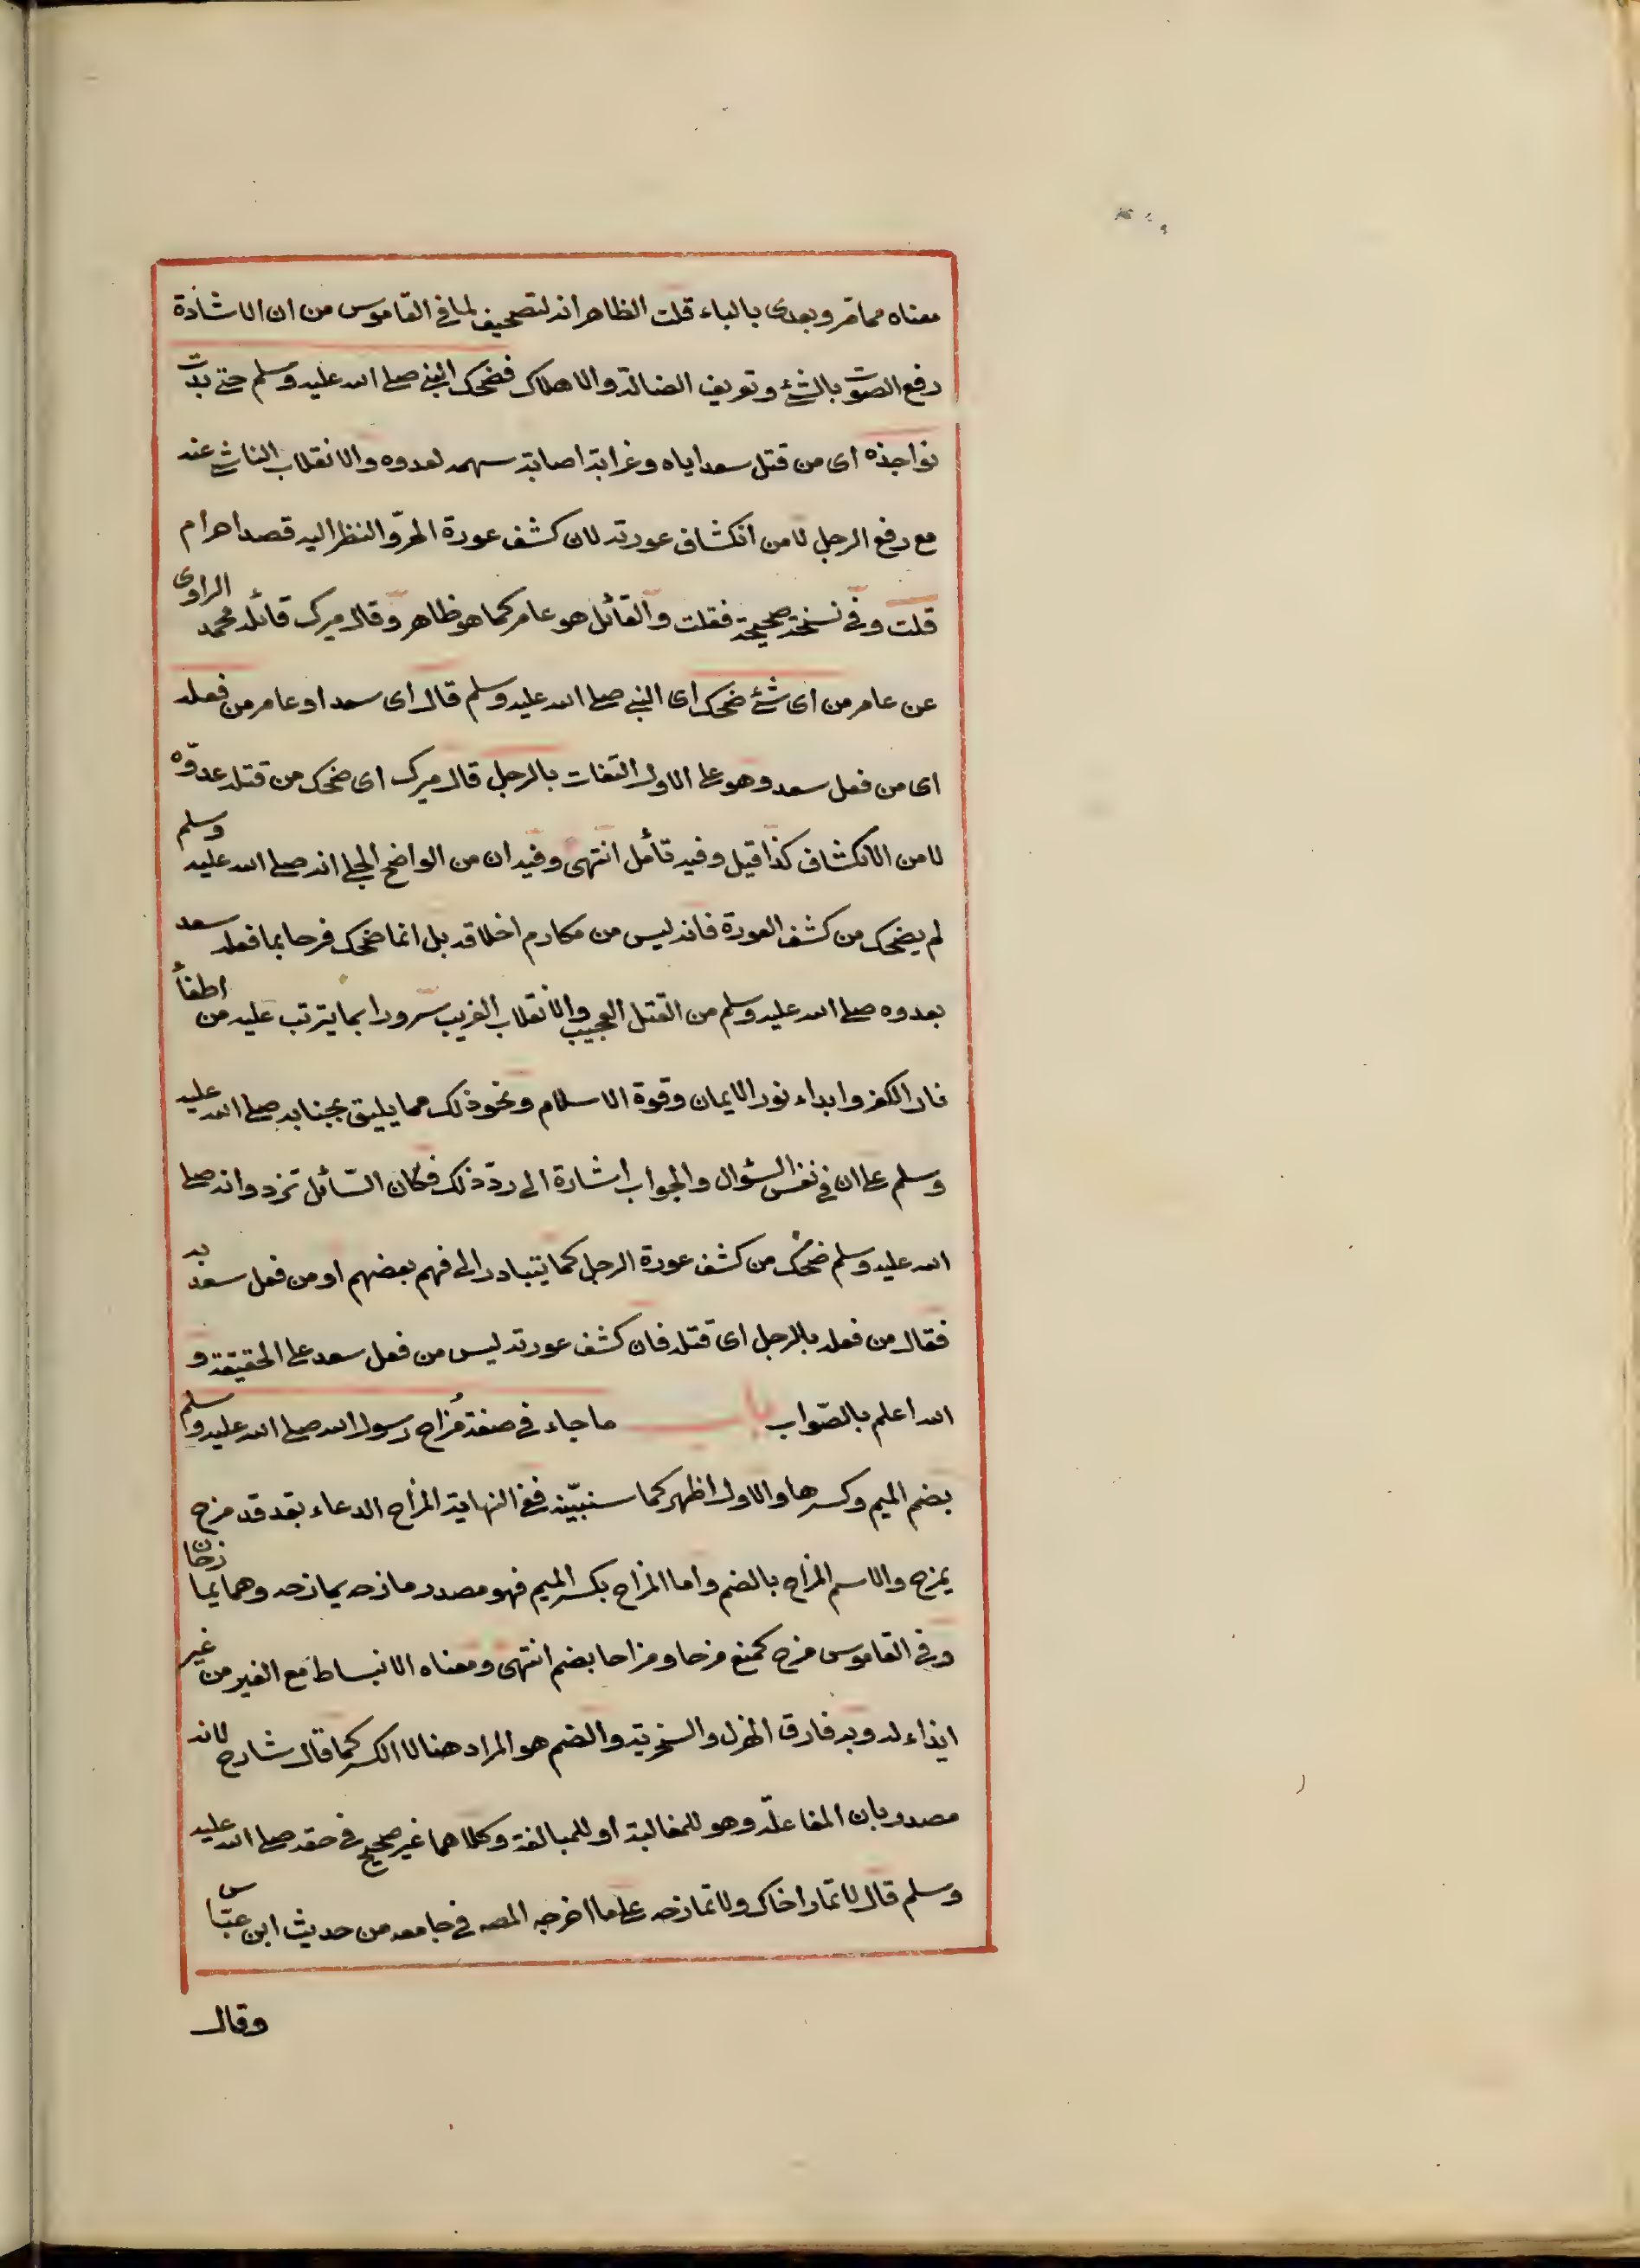 معناه مما مر وبعدى بالباء قلت الظاهر انه لتصحيف لما فى القاموس من ان الاشادة
رفع الصوت بالشئ وتعريف الضالة والاهلاك فضحك النبى صلى الله عليه وسلم حتى بدت
نواجذه اى من قتل سعد اياه وغرابة اصابة سهمه لعدوه والانقلاب الناشى عنه
مع رفع الرجل لا من انكشاف عورته لان كشف عورة الحر والنظر اليه قصدا حرام
قلت وفى نسخة صحيحة فقلت والقائل هو عامر كما هو ظاهر وقال ميرك قائله محمد الراوى
عن عامر من اى شئ ضحك اى النبى صلى الله عليه وسلم قال اى سعد او عامر من فعله
اى من فعل سعد وهو على الاول التفات بالرجل قال ميرك اى ضحك من قتله عدوّه
لا من الانكشاف كذا قيل وفيه تأمل انتهى وفيه ان من الواضح الجلى انه صلى الله عليه وسلم
لم يضحك من كشف العورة فانه ليس من مكارم اخلاقه بل انما ضحك فرحا بما فعله سعد
بعدوه صلى الله عليه وسلم من القتل العجيب والانقلاب الغريب سرورا بما يترتب عليه من اطفأ
نار الكفر وابداء نور الايمان وقوة الاسلام ونحو ذلك مما يليق بجنابه صلى الله عليه
وسلم على ان فى نفس السؤال والجواب اشارة الى ردّ ذلك فكان السّائل تردد وانه صلى
الله عليه وسلم ضحك من كشف عورة الرجل كما يتبادر الى فهم بعضهم او من فعل سعد به
فقال من فعله بالرجل اى قتله فان كشف عورته ليس من فعل سعد على الحقيقة و
الله اعلم بالصّواب باب ما جاء فى صفة مُزاح رسول الله صلى الله عليه وسلم
بضم الميم وكسرها والاول اظهر كما سنبيّنه ففى النهاية المزاح الدعاء بقد قد مزح
يمزح والاسم المزاح بالضم واما المزاح بكسر الميم فهو مصدر مازحه يمازحه وهما يمازحان
وفى القاموس مزح كمنع مزحا ومزاحا بضم انتهى ومعناه الانبساط مع الغير من غير
ايذاء له وبه فارق الهزل والسخرية والضم هو المراد هنا لا الكسر كما قال شارح لانه
مصدر بان المفاعلة وهو للمغالبة او للمبالغة وكلاهما غير صحيح فى حقه صلى الله عليه
وسلم قال لا تمار اخاك ولا تمازحه على ما اخرجه المصه فى جامعه من حديث ابن عبّاس
وقال